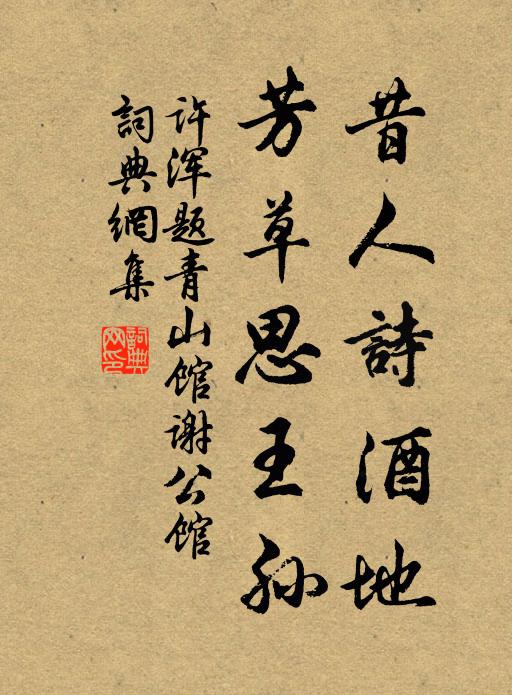 昔人詩酒地
芳草思王孙
许渾题青山馆谢公馆
詞典網集
詞典网印